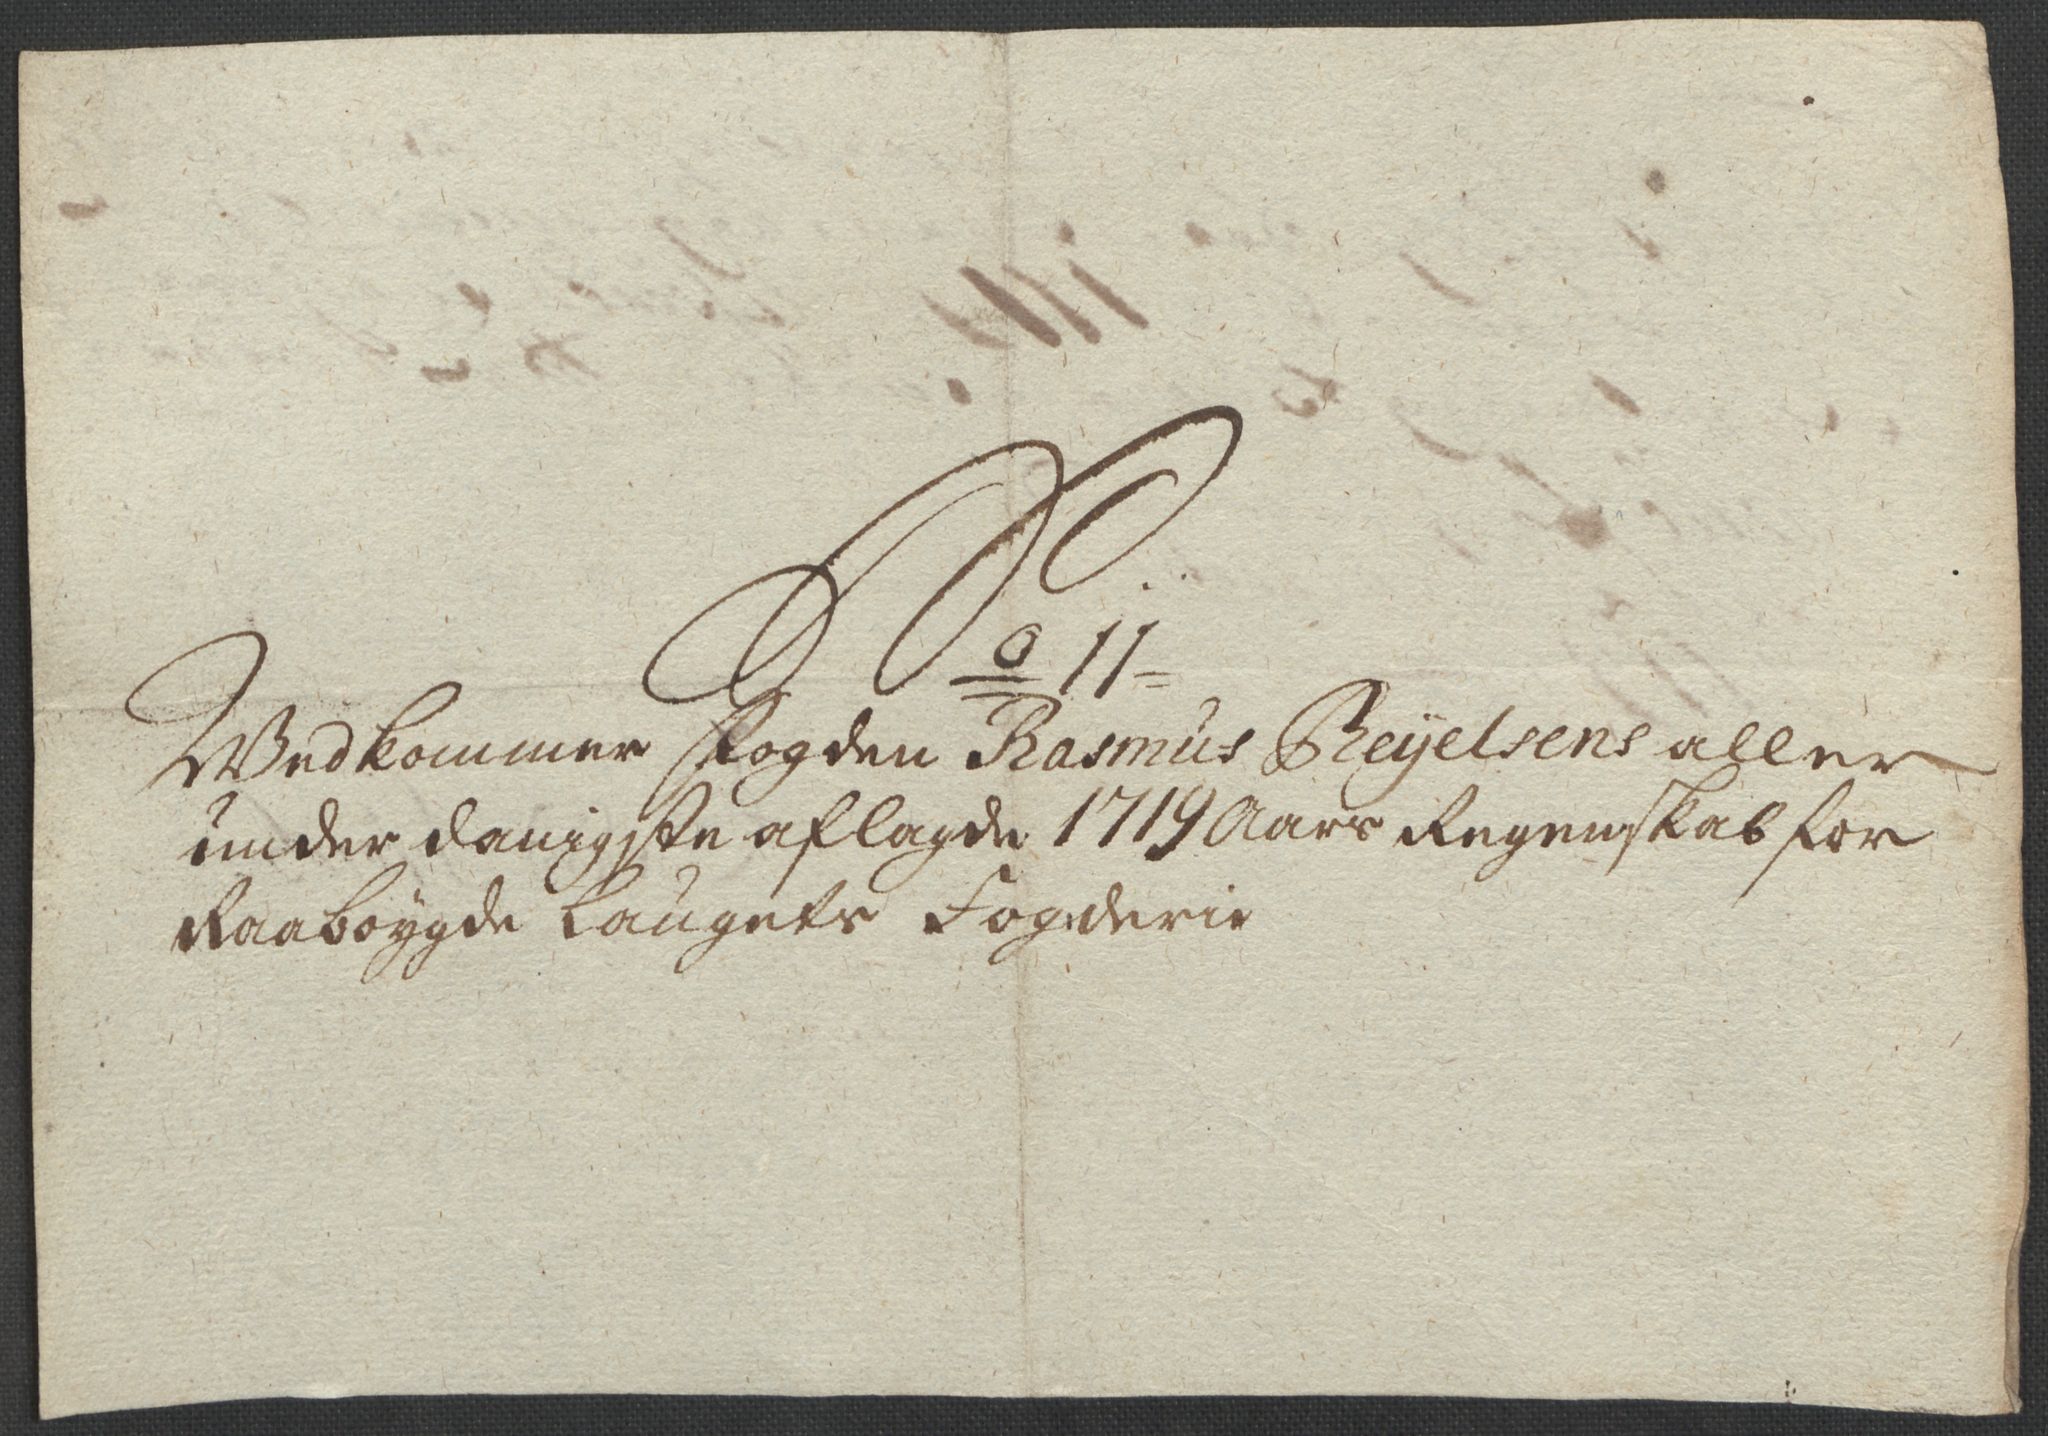 No 11
Vedkommer fogden Rasmus Reyelsens aller
under danigste aflagde 1719 Aars Regenskab for
Raaboygde Laugets Fogderie